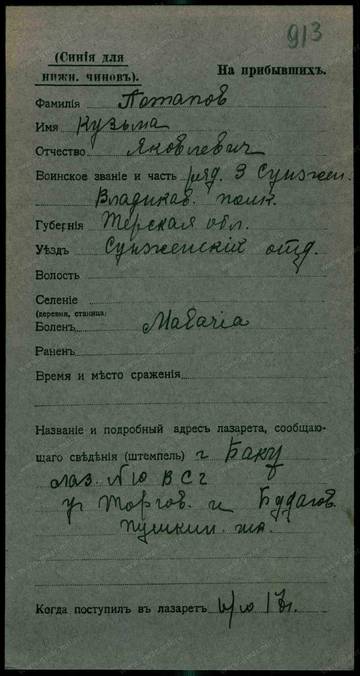 913
(Синія для
нижн. чиновъ).
На прибывшихъ.
Фамилія Потапов
Имя Кузьма
Отчество Яковлевич
Воинское званіе и часть ряд. 3 Сунжен.
Владикав. полк.
Губернія Терская обл.
Уѣздъ Сунженскій отд.
Волость
Селеніе
(деревня, станица)
Боленъ Malaria
Раненъ
Время и мѣсто сраженія
Названіе и подробный адресъ лазарета, сообщаю-
щаго свѣдѣнія (штемпель) г Баку
лаз. №10 В С Г
уг Торгов. и Будагов.
Пушкин.
Когда поступилъ въ лазаретъ